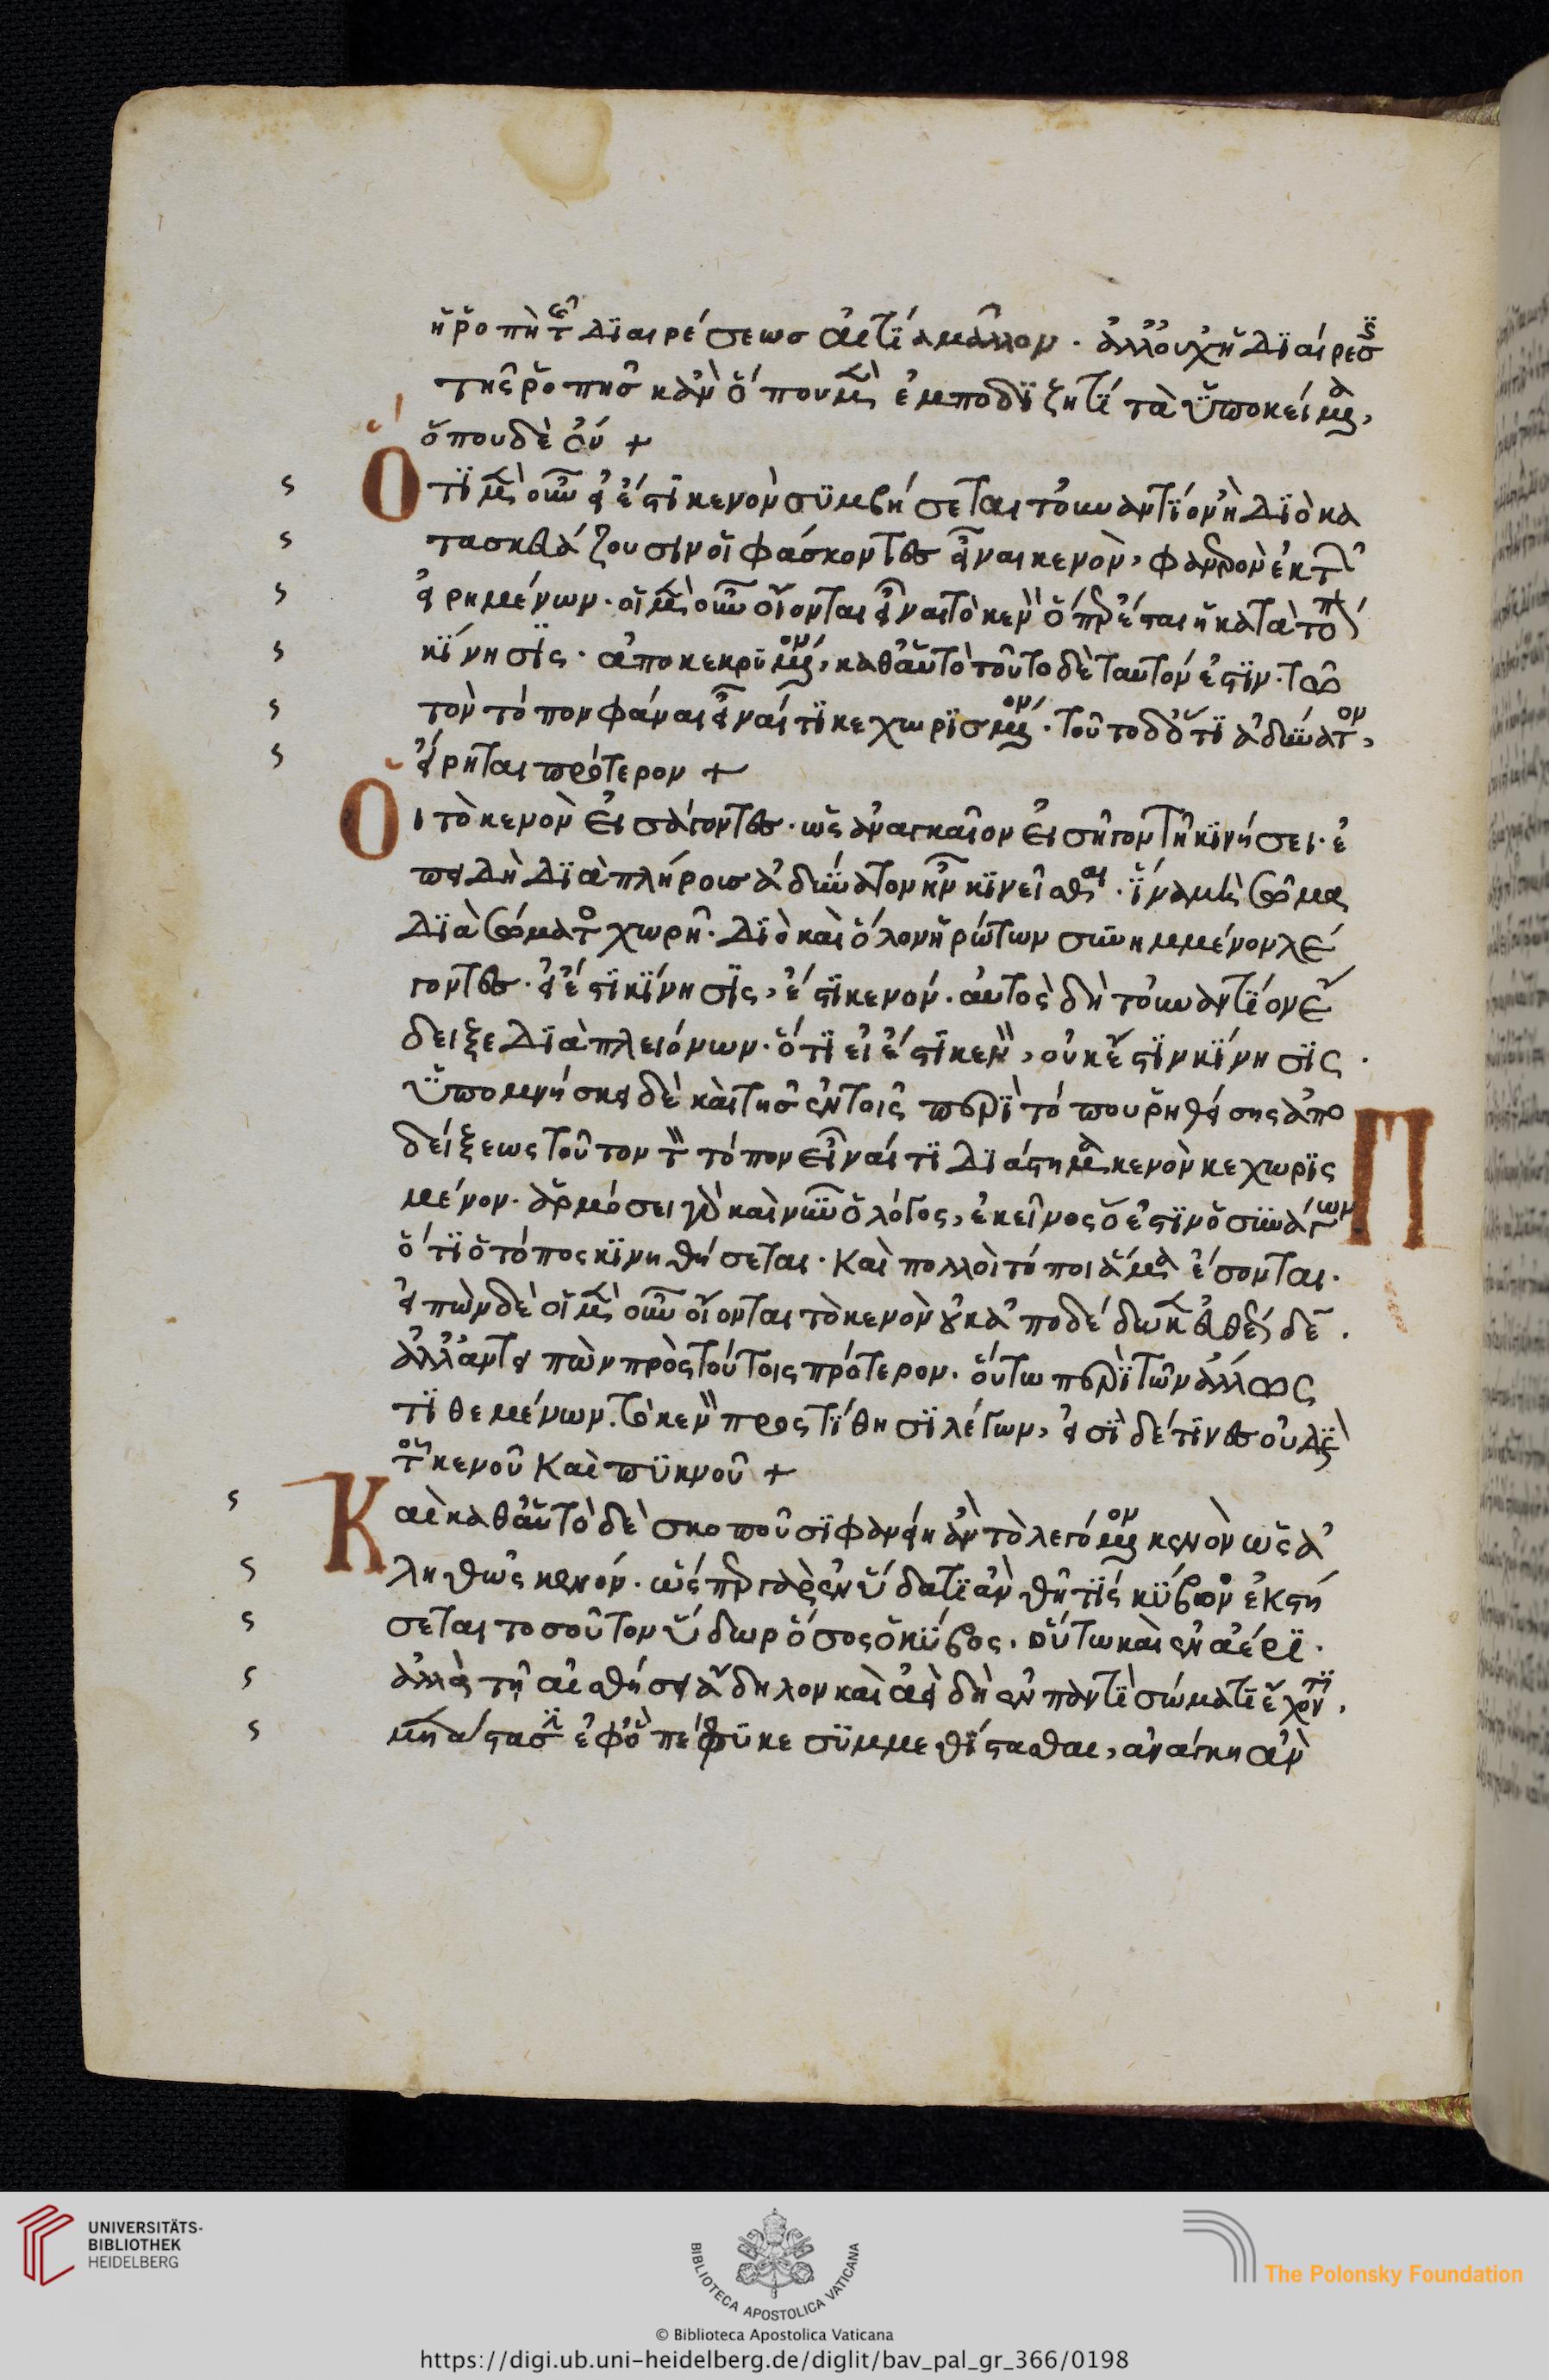 ἡ ῥοπὴ τῆς διαιρέσεως αἰτία μᾶλλον. ἀλλ' οὐχ ἡ διαίρεσις
τῆς ῥοπῆς κἂν ὅπου μὲν ἐμποδίζητι τὰ ὑποκείμενα,
ὅπου δὲ οὐ +
Ὅτι μὲν οὖν εἰ ἔστι κενὸν συμβήσεται τοὐναντίον ἢ διὸ κα
τασκευάζουσιν οἱ φάσκοντες εἶναι κενὸν, φανερὸν ἐκ τῶν
εἰρημένων. οἱ μὲν οὖν οἴονται εἶναι τὸ κενὸν ὅπερ ἔσται ἡ κατὰ τόπον
κίνησις. ἀποκεκριμένον, καθ' αὑτὸ τοῦτο δὲ ταὐτόν ἐστιν. τῶ
τὸν τόπον φάναι εἶναί τι κεχωρισμένον. τοῦτο δ' ὅτι ἀδύνατον,
εἴρηται πρότερον +
Οἱ τὸ κενὸν εἰσάγοντες. ὡς ἀναγκαῖον εἰσῆγον τῆ κινήσει. ἐ
πειδὴ διὰ πλήρους ἀδύνατον ἦν κινεῖσθαι. ἵνα μὴ σῶμα
διὰ σώματος χωρῆ. διὸ καὶ ὅλον ἠρώτων συνημμένον λέ
γοντες. εἰ ἔστι κίνησις, ἔστι κενόν. αὐτὸς δὴ τοὐναντίον ἔ
δειξε διὰ πλειόνων. ὅτι εἰ ἔστι κενὸν, οὐκ ἔστιν κίνησις.
ὑπομνήσκει δὲ καὶ τῆς ἐν τοῖς περὶ τόπου ῥηθείσης ἀπο
δείξεως τοῦτον τὸν τόπον εἶναί τι διάστημα κενὸν κεχωρις
μένον. ἁρμόσει γὰρ καὶ νῦν ὁ λόγος, ἐκεῖνος ὅ ἐστιν ὁ συνάγων
ὅτι ὁ τόπος κινηθήσεται. καὶ πολλοὶ τόποι ἅμα ἔσονται.
εἰπὼν δὲ οἱ μὲν οὖν οἴονται τὸ κενὸν οὐκ ἀποδέδωκεν εὐθὺς δὲ.
ἀλλ' ἀντειπὼν πρὸς τούτοις πρότερον. οὕτω περὶ τῶν ἄλλως
τιθεμένων τὸ κενὸν προστίθησι λέγων, εἰσὶ δέ τινες οἳ διὰ
τοῦ κενοῦ καὶ πυκνοῦ +
Καὶ καθ' αὑτὸ δὲ σκοποῦσι φανείη ἂν τὸ λεγόμενον κενὸν ὡς ἀ
ληθῶς κενόν. ὥσπερ γὰρ ἐν ὕδατι ἂν θῆ τίς κύβον ἐκστή
σεται τοσοῦτον ὕδωρ ὅσος ὁ κύβος. οὕτω καὶ ἐν ἀέρι.
ἀλλὰ τῆ αἰσθήσει ἄδηλον καὶ ἀεὶ δὴ ἐν παντὶ σώματι ἔχοντι.
μετάστασιν ἐφ' ὃ πέφυκε συμμεθίστασθαι, ἀνάγκη ἂν
UNIVERSITÄTS-
BIBLIOTHEK
HEIDELBERG
BIBLIOTECA APOSTOLICA VATICANA
The Polonsky Foundation
© Biblioteca Apostolica Vaticana
https://digi.ub.uni-heidelberg.de/diglit/bav_pal_gr_366/0198